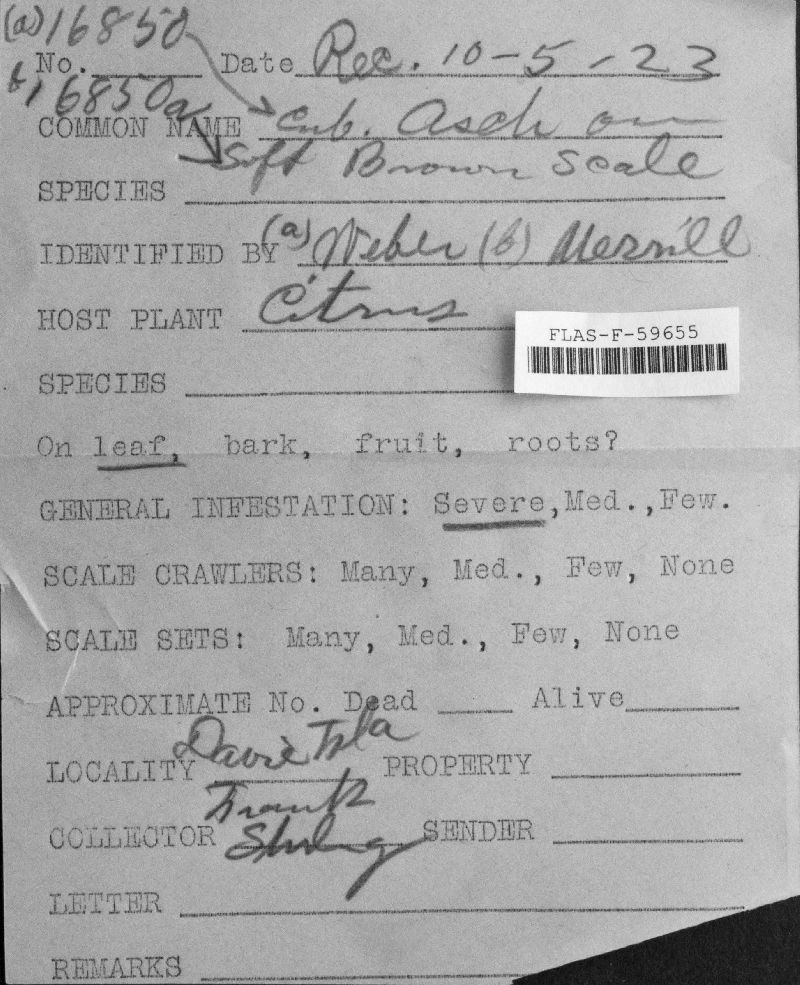 (a) 16850
No. Date Rec. 10-5-23
b) 16850a
COMMON NAME Cub. Asch on
Soft Brown Scale
SPECIES
IDENTIFIED BY (a) Weber (b) Merrill
HOST PLANT Citrus
FLAS-F-59655
SPECIES
On leaf, bark, fruit, roots?
GENERAL INFESTATION: Severe, Med., Few.
SCALE CRAWLERS: Many, Med., Few, None
SCALE SETS: Many, Med., Few, None
APPROXIMATE No. Dead Alive
LOCALITY Davie Fla PROPERTY
Frank
COLLECTOR Stirling SENDER
LETTER
REMARKS